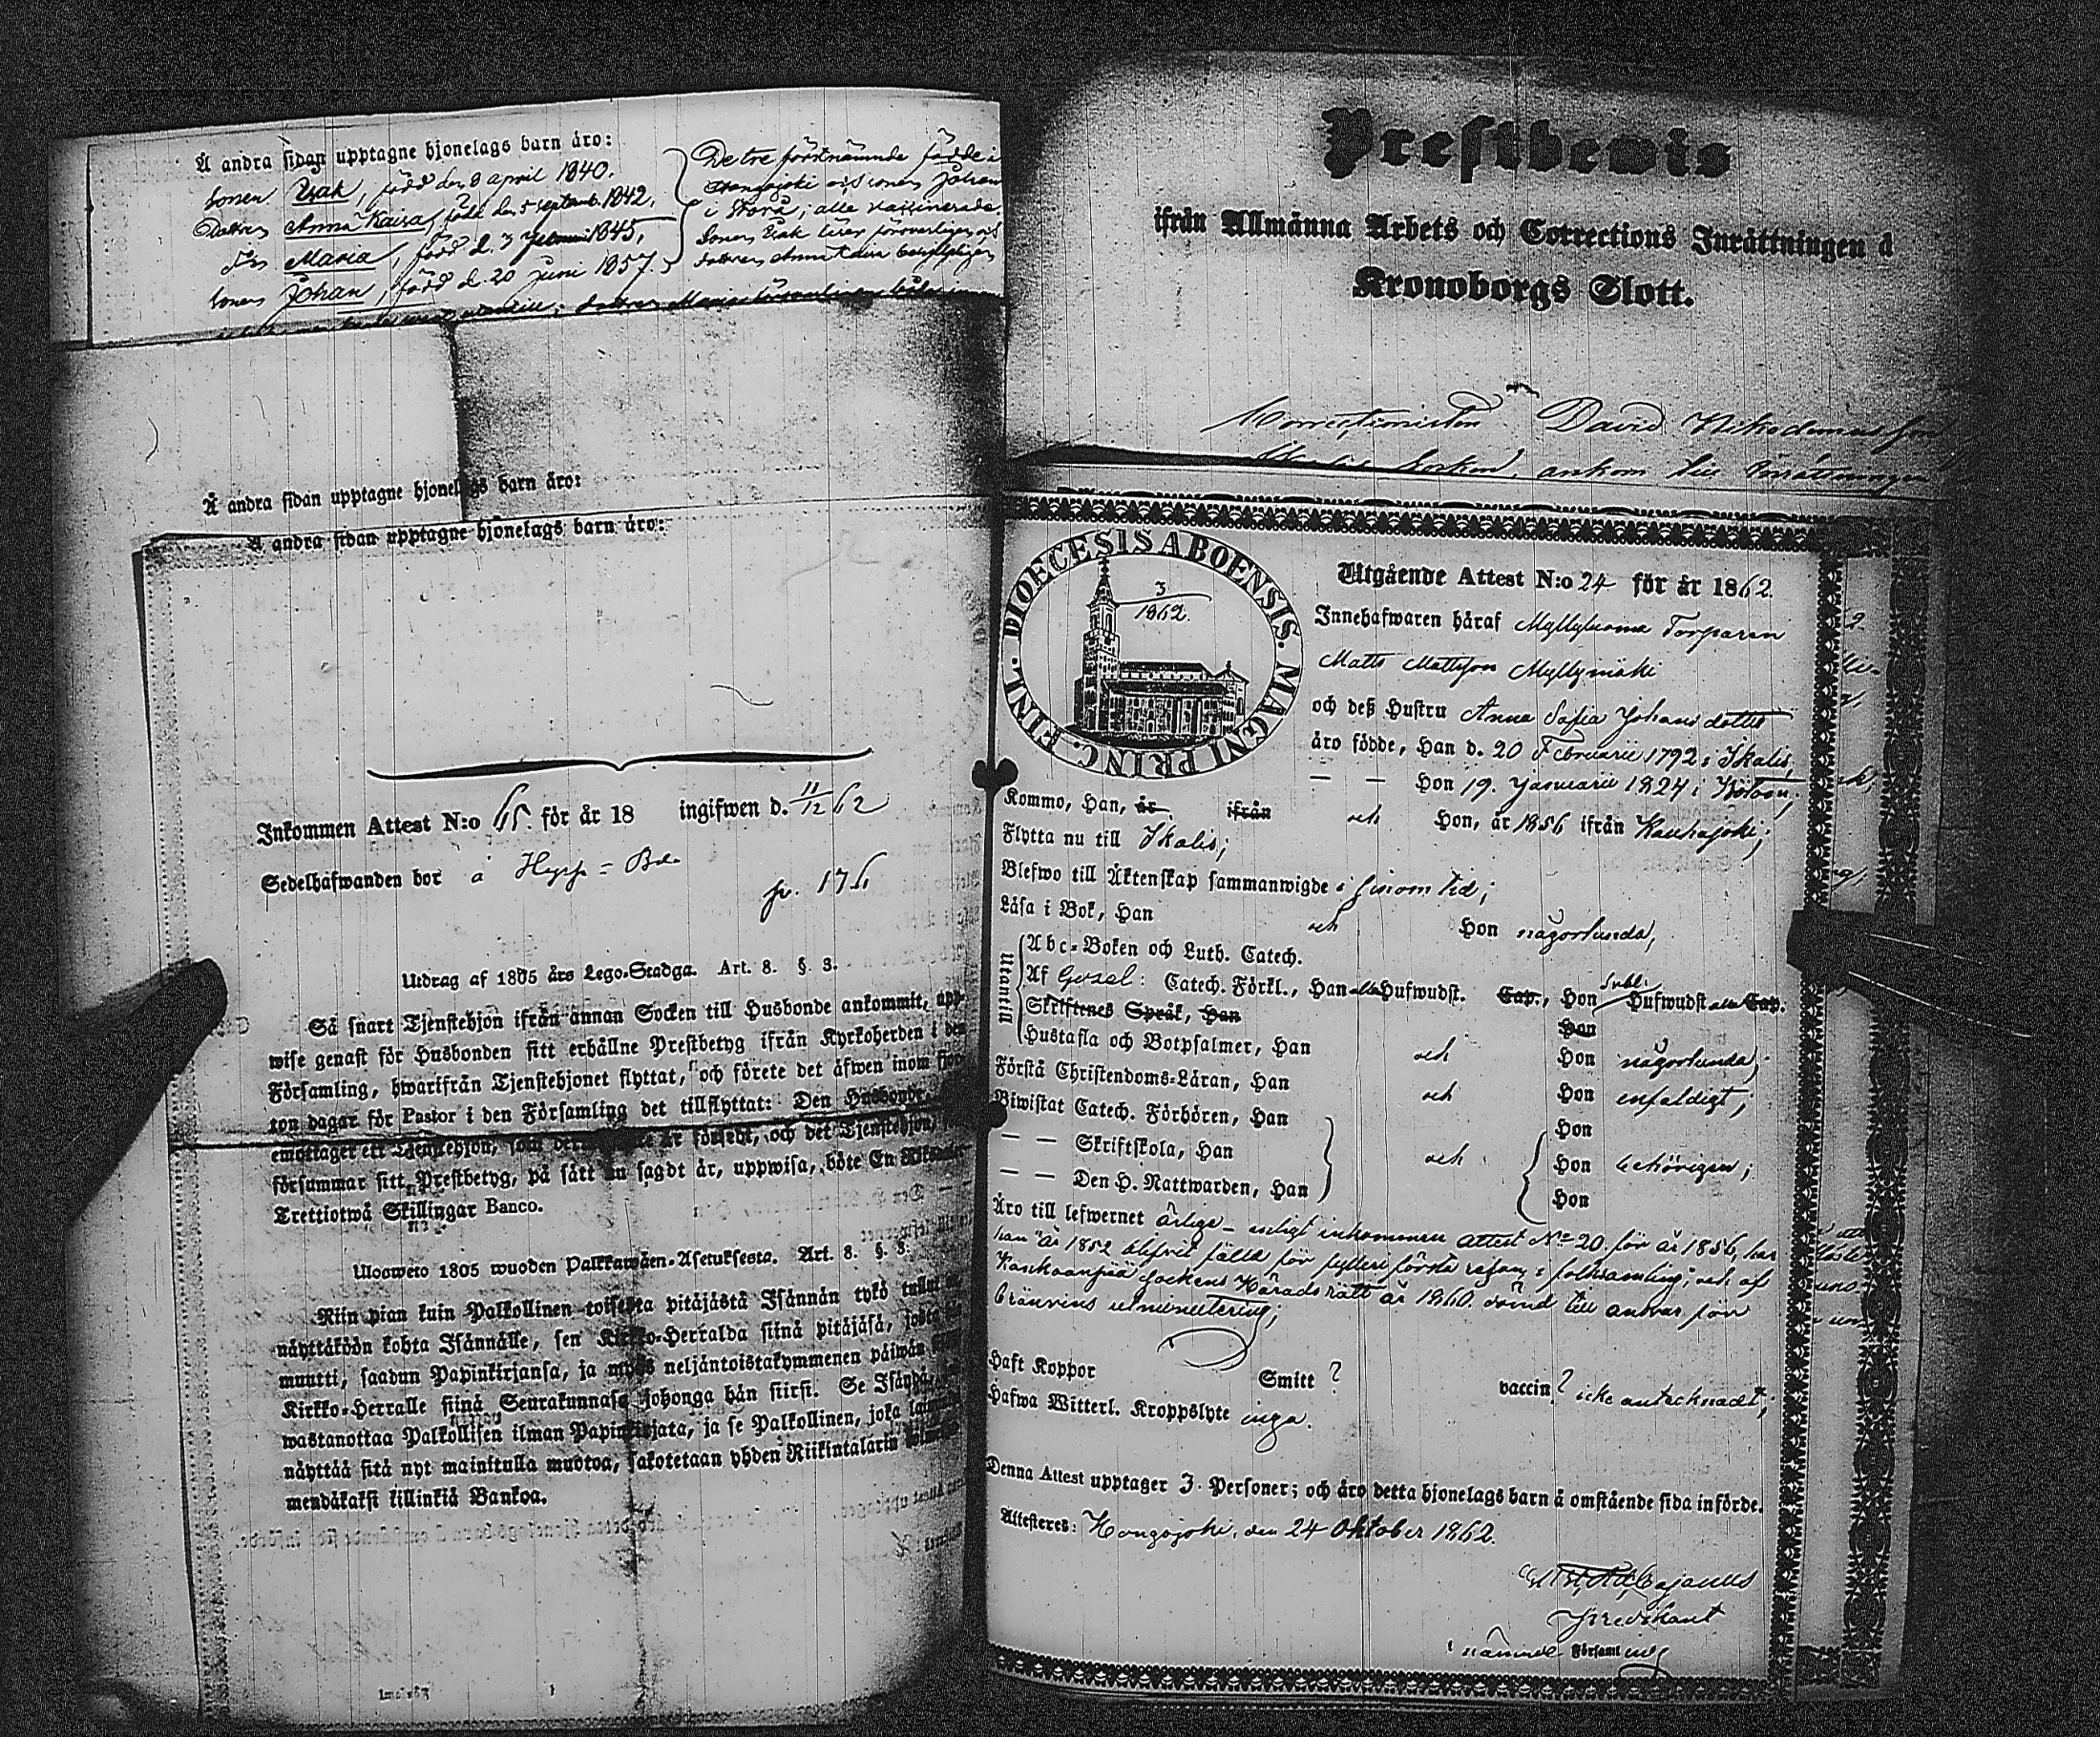 Å andra sidan upptagne hjonelags barn äro:
sonen Isak, född den 9 april 1840.
Dottren Anna Kaisa, född den 5 septemb. 1842,
d:n Maria, född d. 3 Februarii 1845,
sonen Johan, född d. 20 juni 1857.
De tre förstnämnde födde i
Kongojoki och sonen Johan
i Storå; alla vaccinerade.
Sonen Isak läser
dottren Anna Kaisa
dottren Maria
Å andra sidan upptagne hjonelags barn äro:
Å andra sidan upptagne hjonelags barn äro:
Inkommen Attest N:o 65. för år 18 ingifwen d. 11/12 62
Sedelhafwanden bor å
p. 176
Utdrag af 1805 års Lego-Stadga. Art. 8. §. 3.
Så snart Tjenstehjon ifrån annan Socken till Husbonde ankommit, upp-
wise genast för Husbonden sitt erhållne Prestbetyg ifrån Kyrkoherden i den
Församling, hwarifrån Tjenstehjonet flyttat, och förete det äfwen inom fjor-
ton dagar för Pastor i den Församling det tillflyttat: Den Husbonde,
emottager ett Tjenstehjon, är försedt, och det Tjenstehjon,
försummar sitt Prestbetyg, på sätt nu sagdt är, uppwisa, böte En Riksdaler
Trettiotwå Skillingar Banco.
Ulosweto 1805 wuoden Palkkawäen-Asetuksesta. Art. 8. §. 3.
Niin pian kuin Palkollinen toisesta pitäjästä Isännän tykö tullut
näyttäköön kohta Isännälle, sen Kirkko-Herralda siinä pitäjäsä, josta
muutti, saadun Papinkirjansa, ja myös neljäntoistakymmenen päiwän
Kirkko-Herralle siinä Seurakunnasa johonga hän siirsi. Se Isändä,
wastanottaa Palkollisen ilman Papinkirjata, ja se Palkollinen, joka
näyttää sitä nyt mainitulla muotoa, sakotetaan yhden Riikintalarin
mendäkaksi killinkiä Bankoa.
Prestbewis
ifrån Allmänna Arbets och Corrections Inrättningen å
Kronoborgs Slott.
Correctionisten David Nikodemus
ankom till Inrättningen
DIOECESIS ABOENSIS. MAGNI PRINC. FINL.
3
1862.
Utgående Attest N:o 24 för år 1862.
Innehafwaren häraf Myllyluoma Torparen
Matts Mattsson Myllymäki
och deß Hustru Anna Sofia Johansdotter
äro födde, Han d. 20 Februarii 1792 i Ikalis,
— — Hon 19. Januarii 1824 i
Kommo, Han, år ifrån och Hon, år 1856 ifrån Kauhajoki;
Flytta nu till Ikalis;
Blefwo till Äktenskap sammanwigde i sinom tid;
Läsa i Bok, Han och Hon någorlunda,
Utantill
Abc-Boken och Luth. Catech.
Af Gezel: Catech. Förkl., Han alla Hufwudst. Cap., Hon Svbl. Hufwudst alla Cap.
Skriftenes Språk, Han Han
Hustafla och Botpsalmer, Han och Hon någorlunda;
Förstå Christendoms-Läran, Han och Hon enfaldigt;
Biwistat Catech. Förhören, Han Hon
— — Skriftskola, Han och Hon behörigen;
— — Den H. Nattwarden, Han Hon
Äro till lefwernet ärlige — enligt inkommen attest N:o 20. för år 1856, har
han år 1852 blifvit fälld för fylleri första resan, i folksamling; och af
Kankaanpää Sockens Häradsrätt år 1860. dömd till ansvar för
bränvins utminutering;
Haft Koppor Smitt ? vaccin ? icke antecknadt;
Hafwa Witterl. Kroppslyte inga.
Denna Attest upptager 3. Personer; och äro detta hjonelags barn å omstående sida införde.
Attesteres: Kongojoki, den 24 Oktober 1862.
Cajanus
Predikant
i nämnde Församling